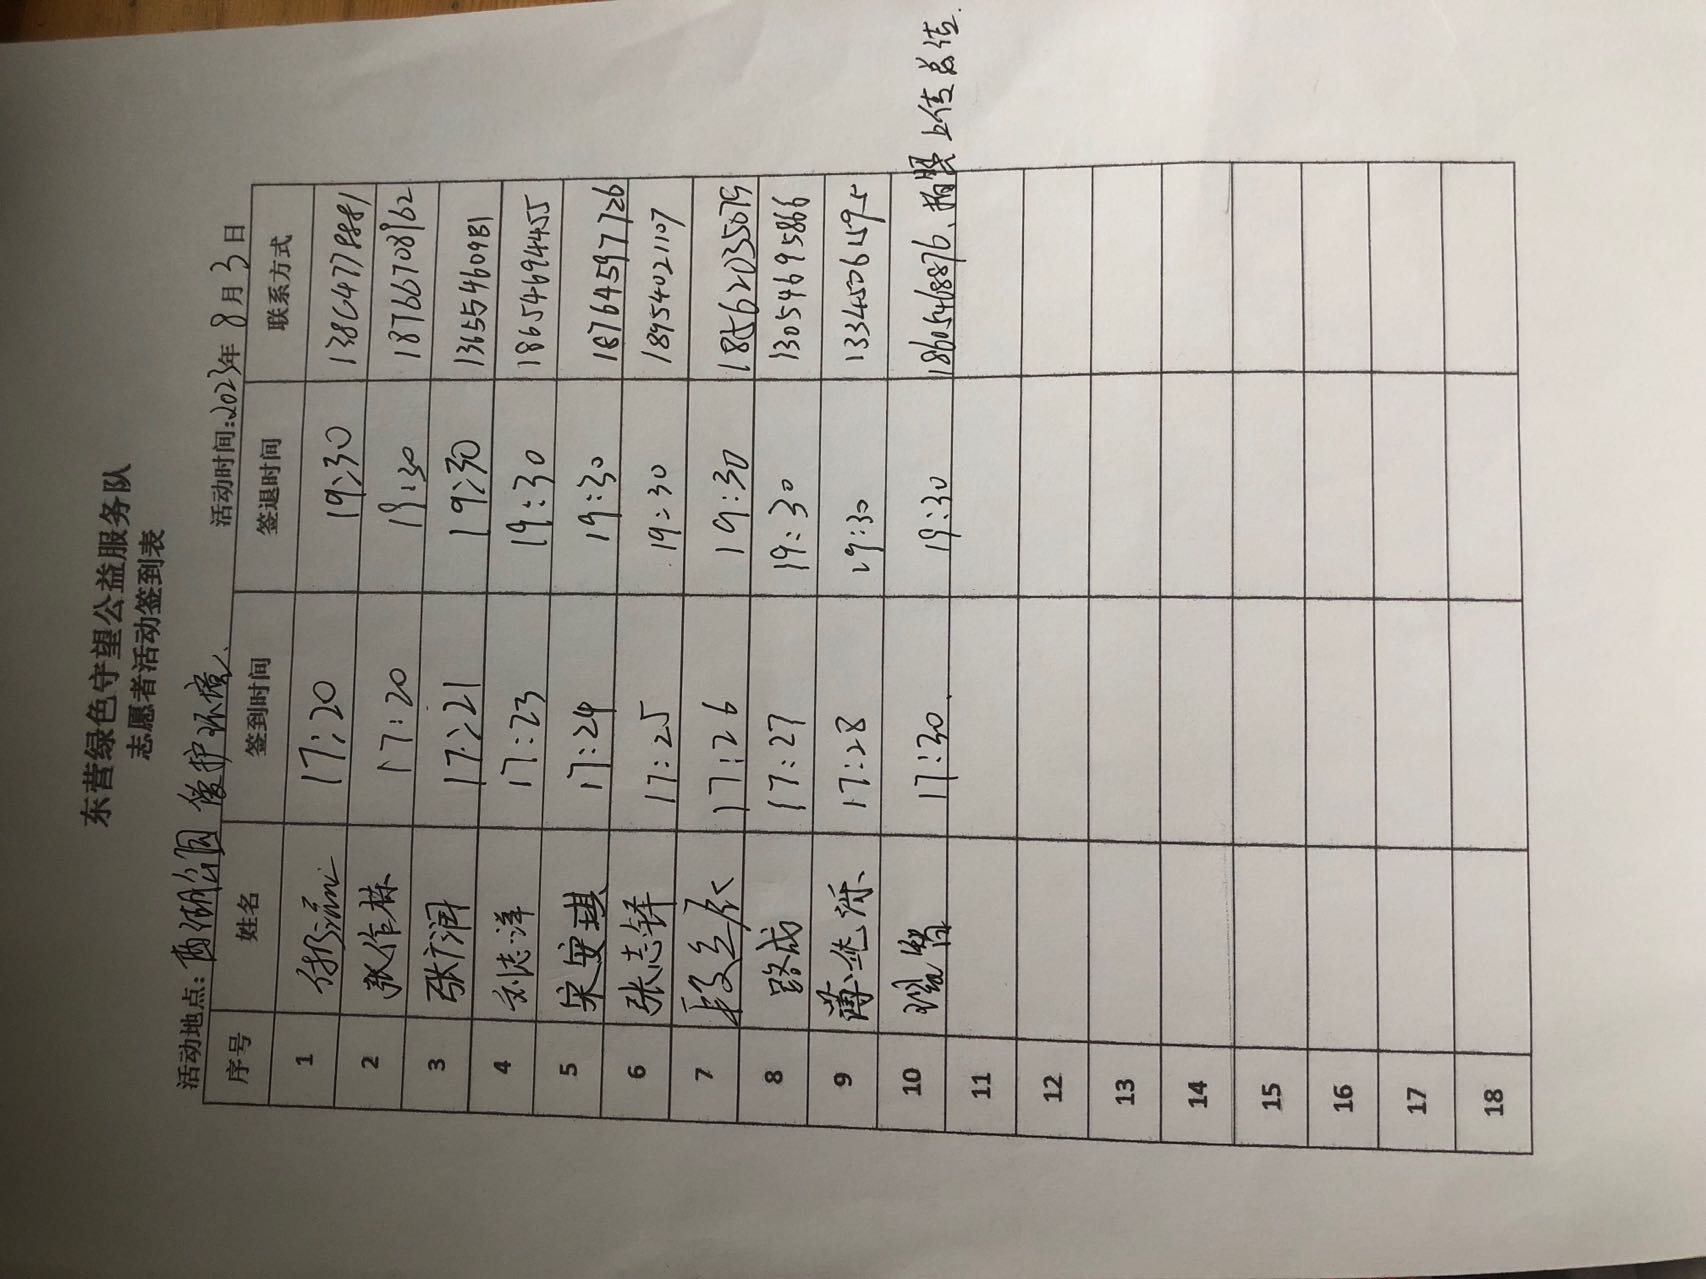 东营绿色守望公益服务队
志愿者活动签到表
活动地点:两湖公园 爱护环境、 活动时间:2023年 8 月 3 日
序号 姓名 签到时间 签退时间 联系方式
1 17:20 19:30
2 张作栋 17:20 19:30 18766708962
3 张广润 17:21 19:30
4 刘志洋 17:23 19:30 18654694455
5 宋安琪 17:24 19:30 18764597726
6 张志铎 17:25 19:30 18954021107
7 17:26 19:30 18562035079
8 路成 17:27 19:30 13054695866
9 17:28 19:30
10 17:30 19:30 18605468876、 上传总结.
11
12
13
14
15
16
17
18